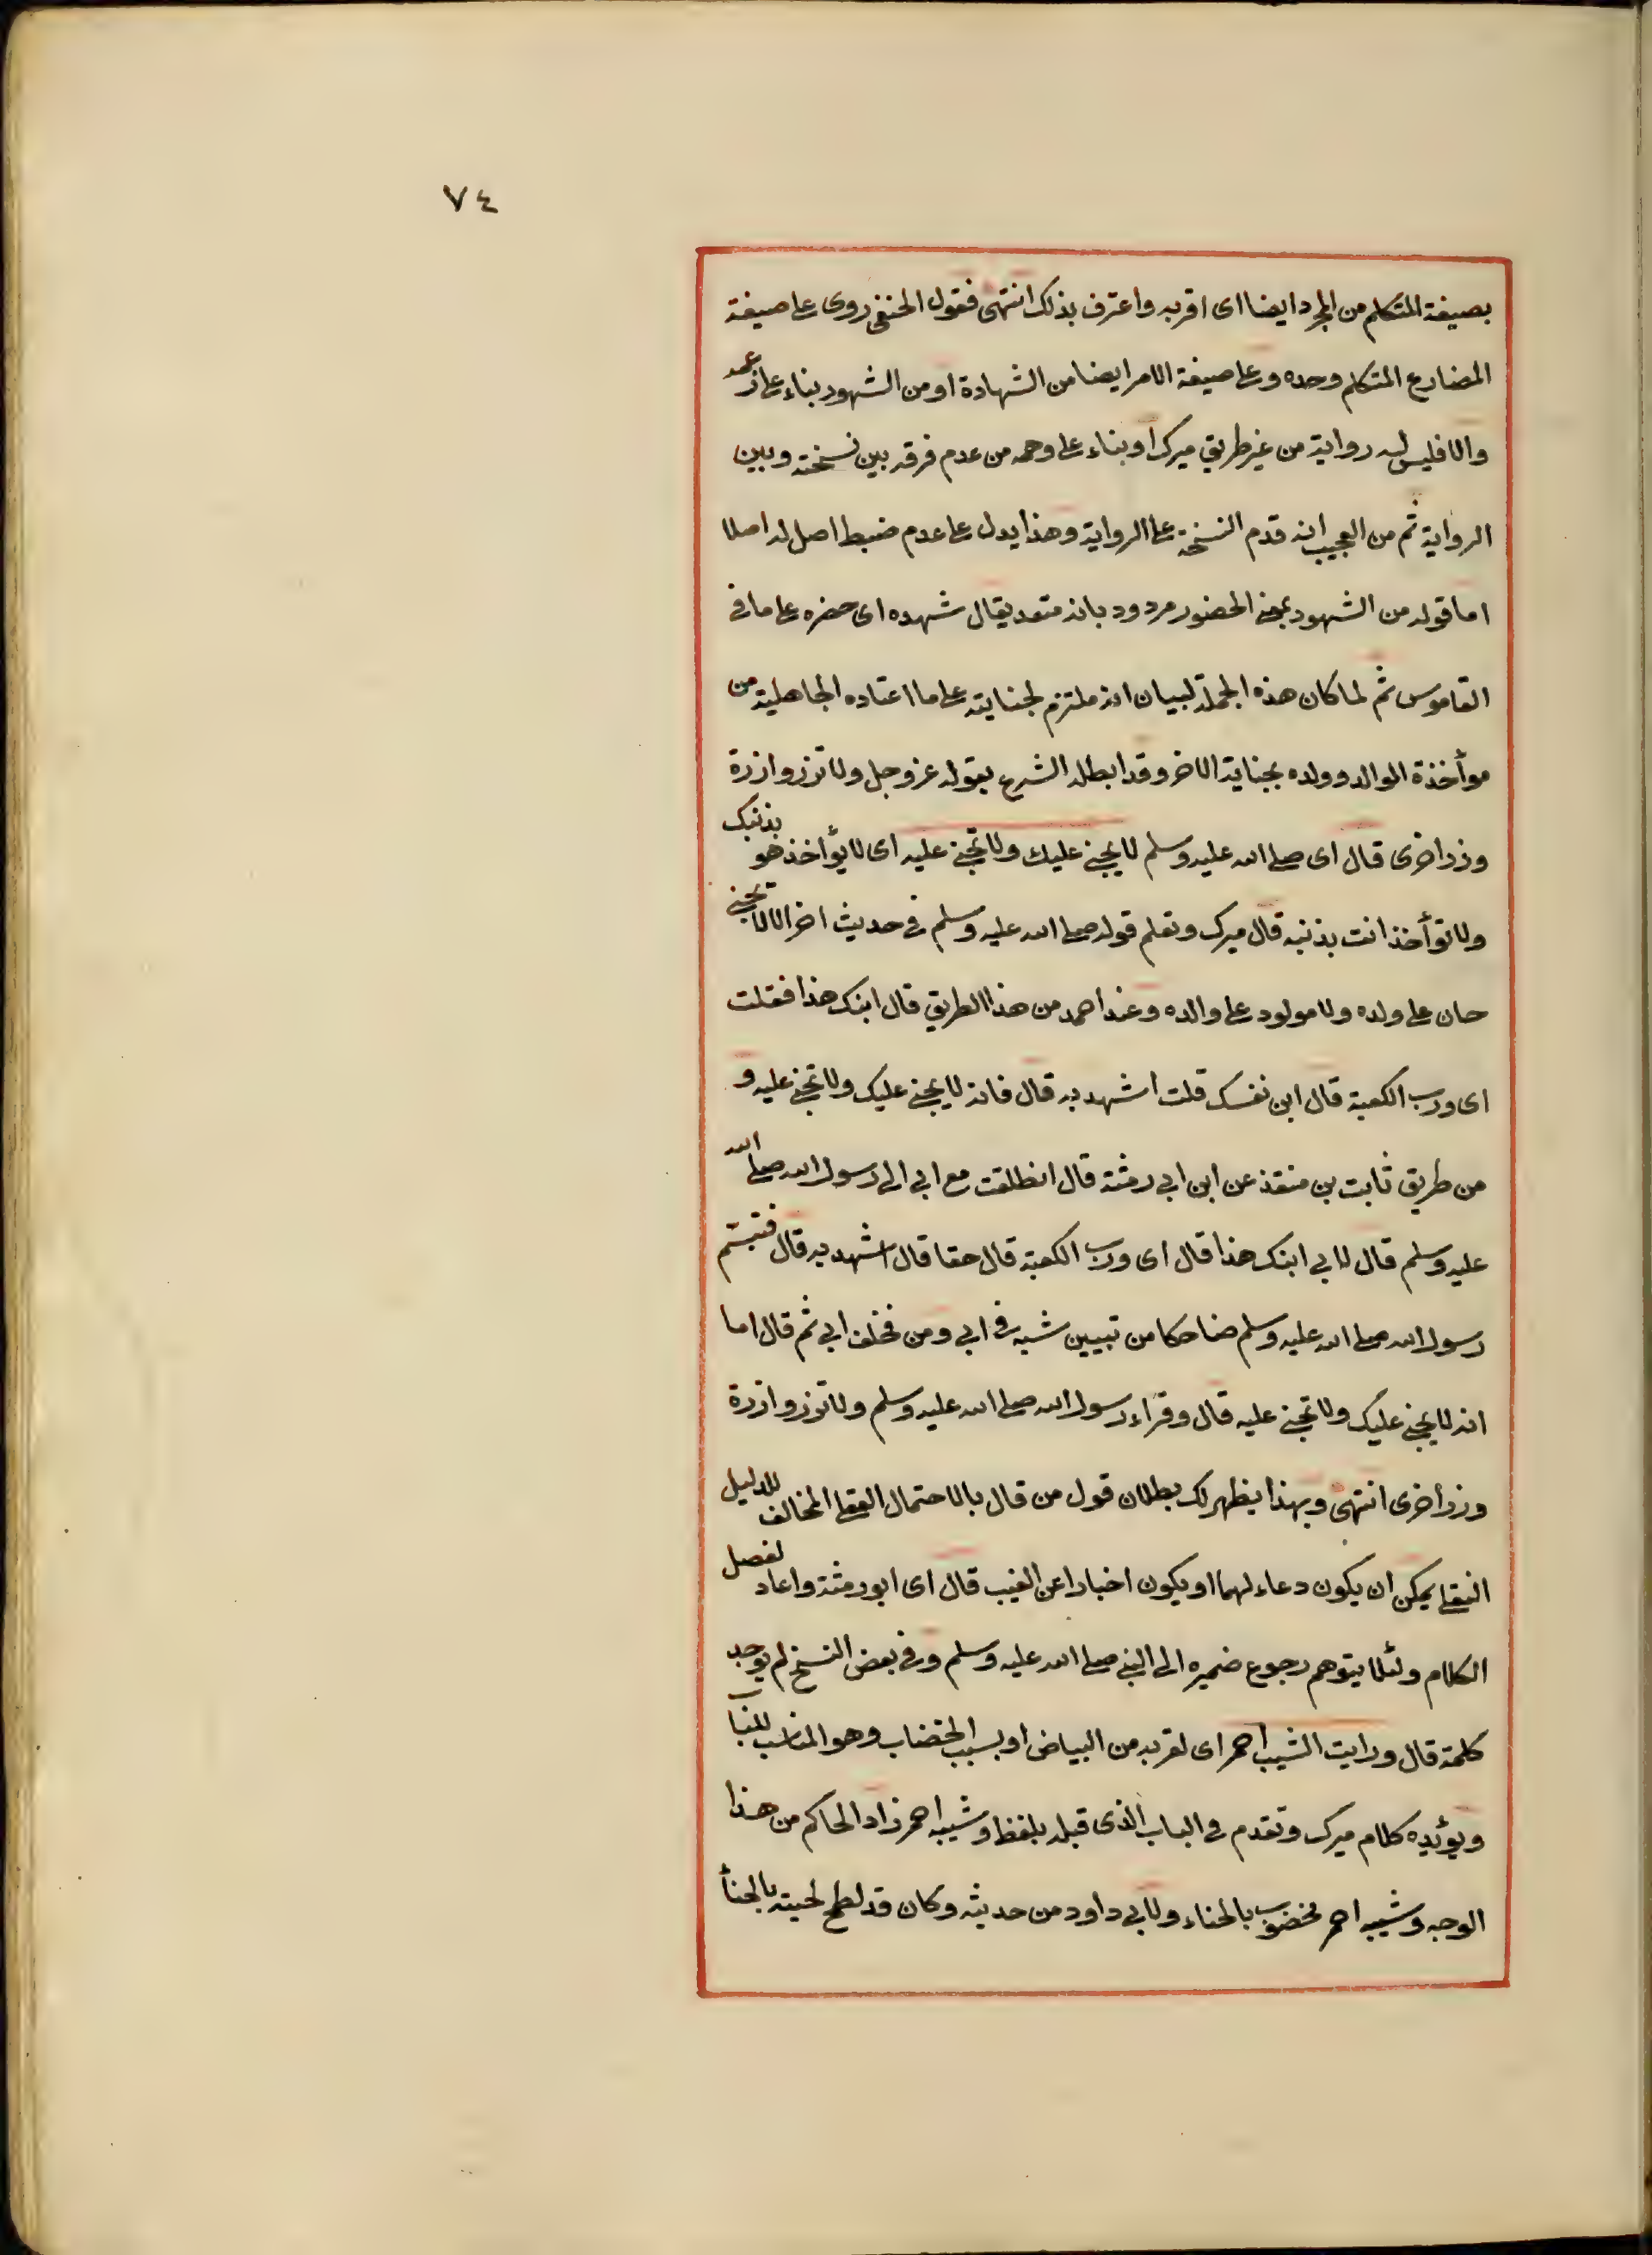 ٧٤
بصيغة المتكلم من المجرد ايضا اى اقر به واعترف بذلك انتهى فقول الحنفى روى على صيغة
المضارع المتكلم وحده وعلى صيغة الامر ايضا من الشهادة او من الشهود بناء على زعمه
والا فليس له رواية من غير طريق ميرك او بناء على وهمه من عدم فرقه بين نسخته وبين
الرواية ثم من العجيب انه قدم النسخة على الرواية وهذا يدل على عدم ضبط اصل له اصلا
اما قوله من الشهود بمعنى الحضور مردود بانه متعد يقال شهده اى حضره على ما فى
القاموس ثم لما كان هذه الجملة لبيان انه ملتزم لجنايته على ما اعتاده الجاهلية من
موأخذة الوالد وولده بجناية الاخر وقد ابطله الشرع بقوله عز وجل ولا تزر وازرة
وزر اخرى قال اى صلى الله عليه وسلم لا يجنى عليك ولا تجنى عليه اى لا يؤاخذ هو بذنبك
ولا تؤأخذ انت بذنبه قال ميرك ونعلم قوله صلى الله عليه وسلم فى حديث اخر الا لا يجنى
جان على ولده ولا مولود على والده وعند احمد من هذا الطريق قال ابنك هذا فقلت
اى ورب الكعبة قال ابن نفسك قلت اشهد به قال فانه لا يجنى عليك ولا تجنى عليه و
من طريق ثابت بن منقذ عن ابن ابى رمثة قال انطلقت مع ابى الى رسول الله صلى الله
عليه وسلم قال لابى ابنك هذا قال اى ورب الكعبة قال حقا قال اشهد به قال فتبسم
رسول الله صلى الله عليه وسلم ضاحكا من تبيين شبه فى ابى ومن فحلف ابى ثم قال اما
انه لا يجنى عليك ولا تجنى عليه قال وقراء رسول الله صلى الله عليه وسلم ولا تزر وازرة
وزر اخرى انتهى وبهذا يظهر لك بطلان قول من قال بالاحتمال العقلى المخالف للدليل
النقلى يمكن ان يكون دعاء لهما او يكون اخبارا عن الغيب قال اى ابو رمثة واعاد لفصل
الكلام ولئلا يتوهم رجوع ضميره الى النبى صلى الله عليه وسلم وفى بعض النسخ لم يوجد
كلمة قال ورايت الشيب احمر اى لقربه من البياض او بسبب الخضاب وهو المناسب للباب
ويؤيده كلام ميرك وتقدم فى الباب الذى قبله بلفظ وشيبه احمر زاد الحاكم من هذا
الوجه وشيبه احمر مخضوب بالحناء ولابى داود من حديثه وكان قد لطخ لحيته بالحنأ